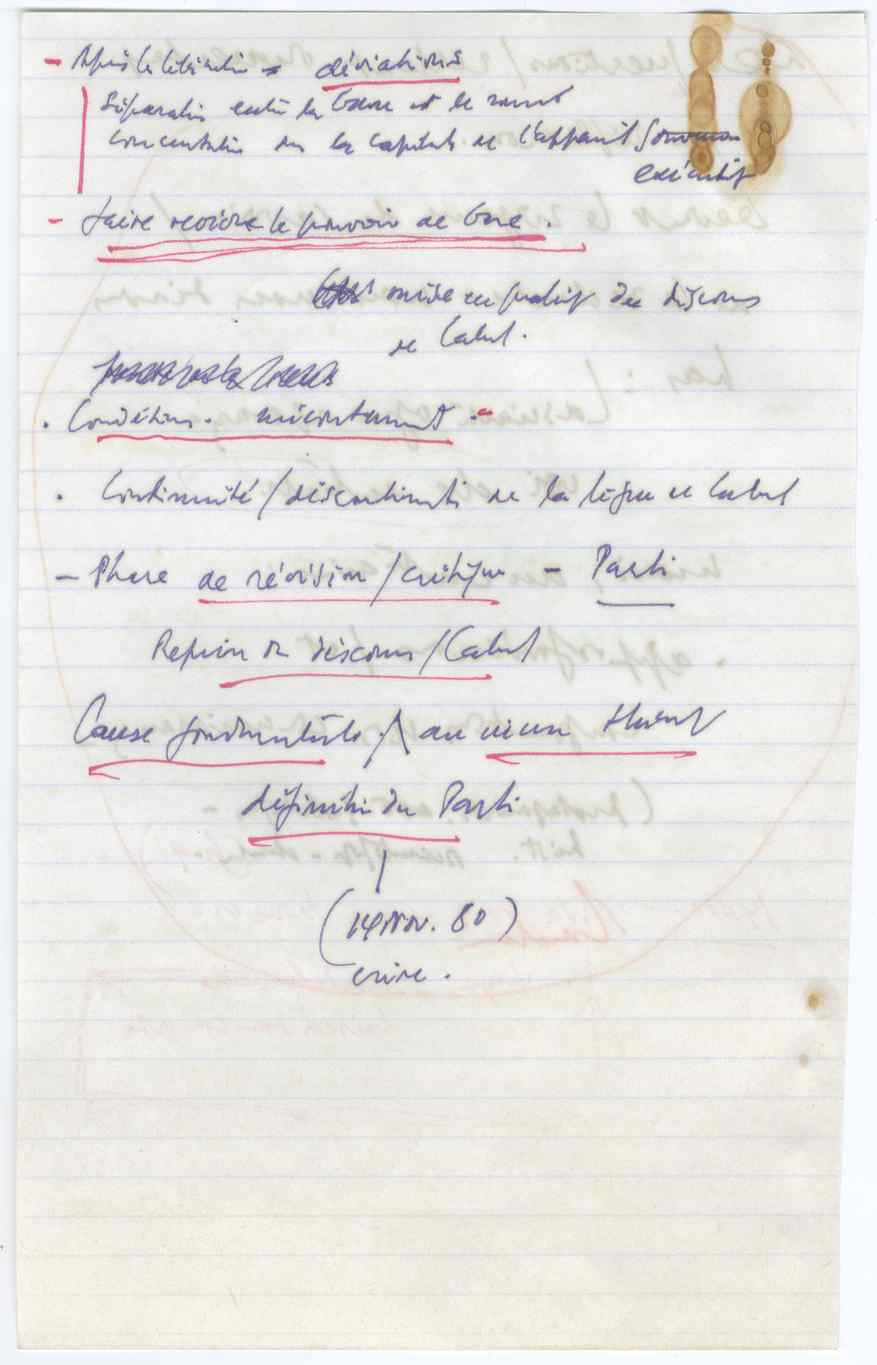 - Après la libération → déviations
Séparation entre la base et le sommet
concentration dans la capitale de l'appareil
exécutif
- faire revivre le pouvoir de base.
mise en pratique du discours
de Cabral.
. Conditions. mécontentement -
. Continuité/discontinuité de la ligne de Cabral
- Phase de révision/critique - Parti
Reprise du discours/Cabral
Cause fondamentale / au niveau
définition du Parti
(14 Nov. 80)
crise.